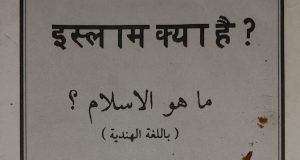 इस्लाम क्या है ?
ما هو الاسلام ؟
( باللغة الهندية )